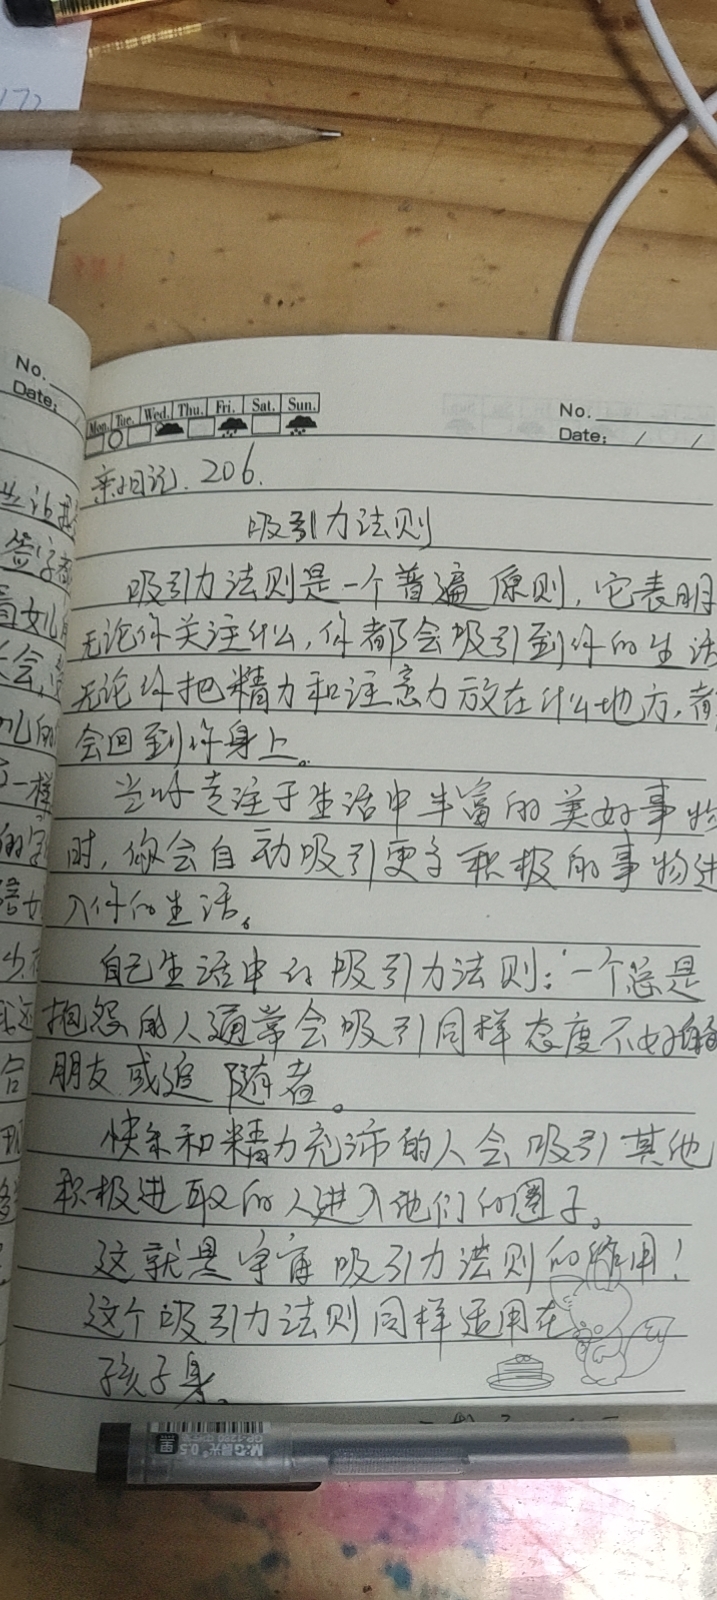 172
No.
Date:
Mon. Tue. Wed. Thu. Fri. Sat. Sun.
No.
Date: / /
亲子日记.206.
吸引力法则
吸引力法则是一个普遍原则,它表明
无论你关注什么,你都会吸引到你的生活
无论你把精力和注意力放在什么地方,都
会回到你身上。
当你专注于生活中丰富的美好事物
时,你会自动吸引更多积极的事物进
入你的生活。
自己生活中的吸引力法则:一个总是
抱怨的人通常会吸引同样态度不好的
朋友或追随者。
快乐和精力充沛的人会吸引其他
积极进取的人进入他们的圈子。
这就是宇宙吸引力法则的作用!
这个吸引力法则同样适用在
孩子身。
M&G 晨光 0.5
GP-1280
黑